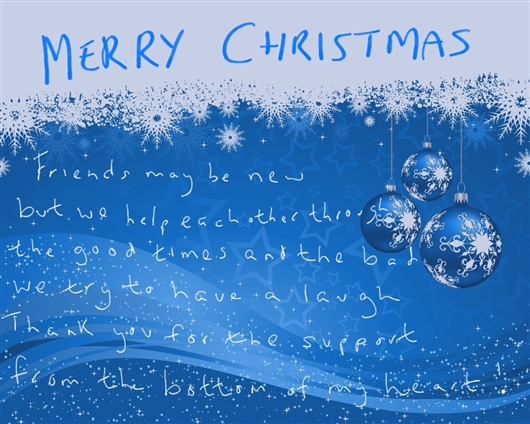 MERRY CHRISTMAS
Friends may be new
but we help each other throu
the good times and the bad
we try to have a laugh
Thank you for the support
from the bottom of my heart!